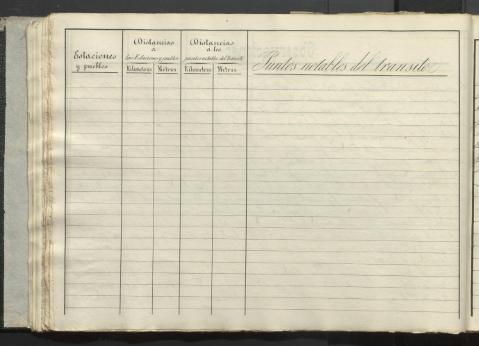 Estaciones
y pueblos
Distancias
a
las Estaciones y pueblos
Kilometros Metros
Distancias
a los
puntos notables del Tránsito
Kilometros Metros
Puntos notables del transito